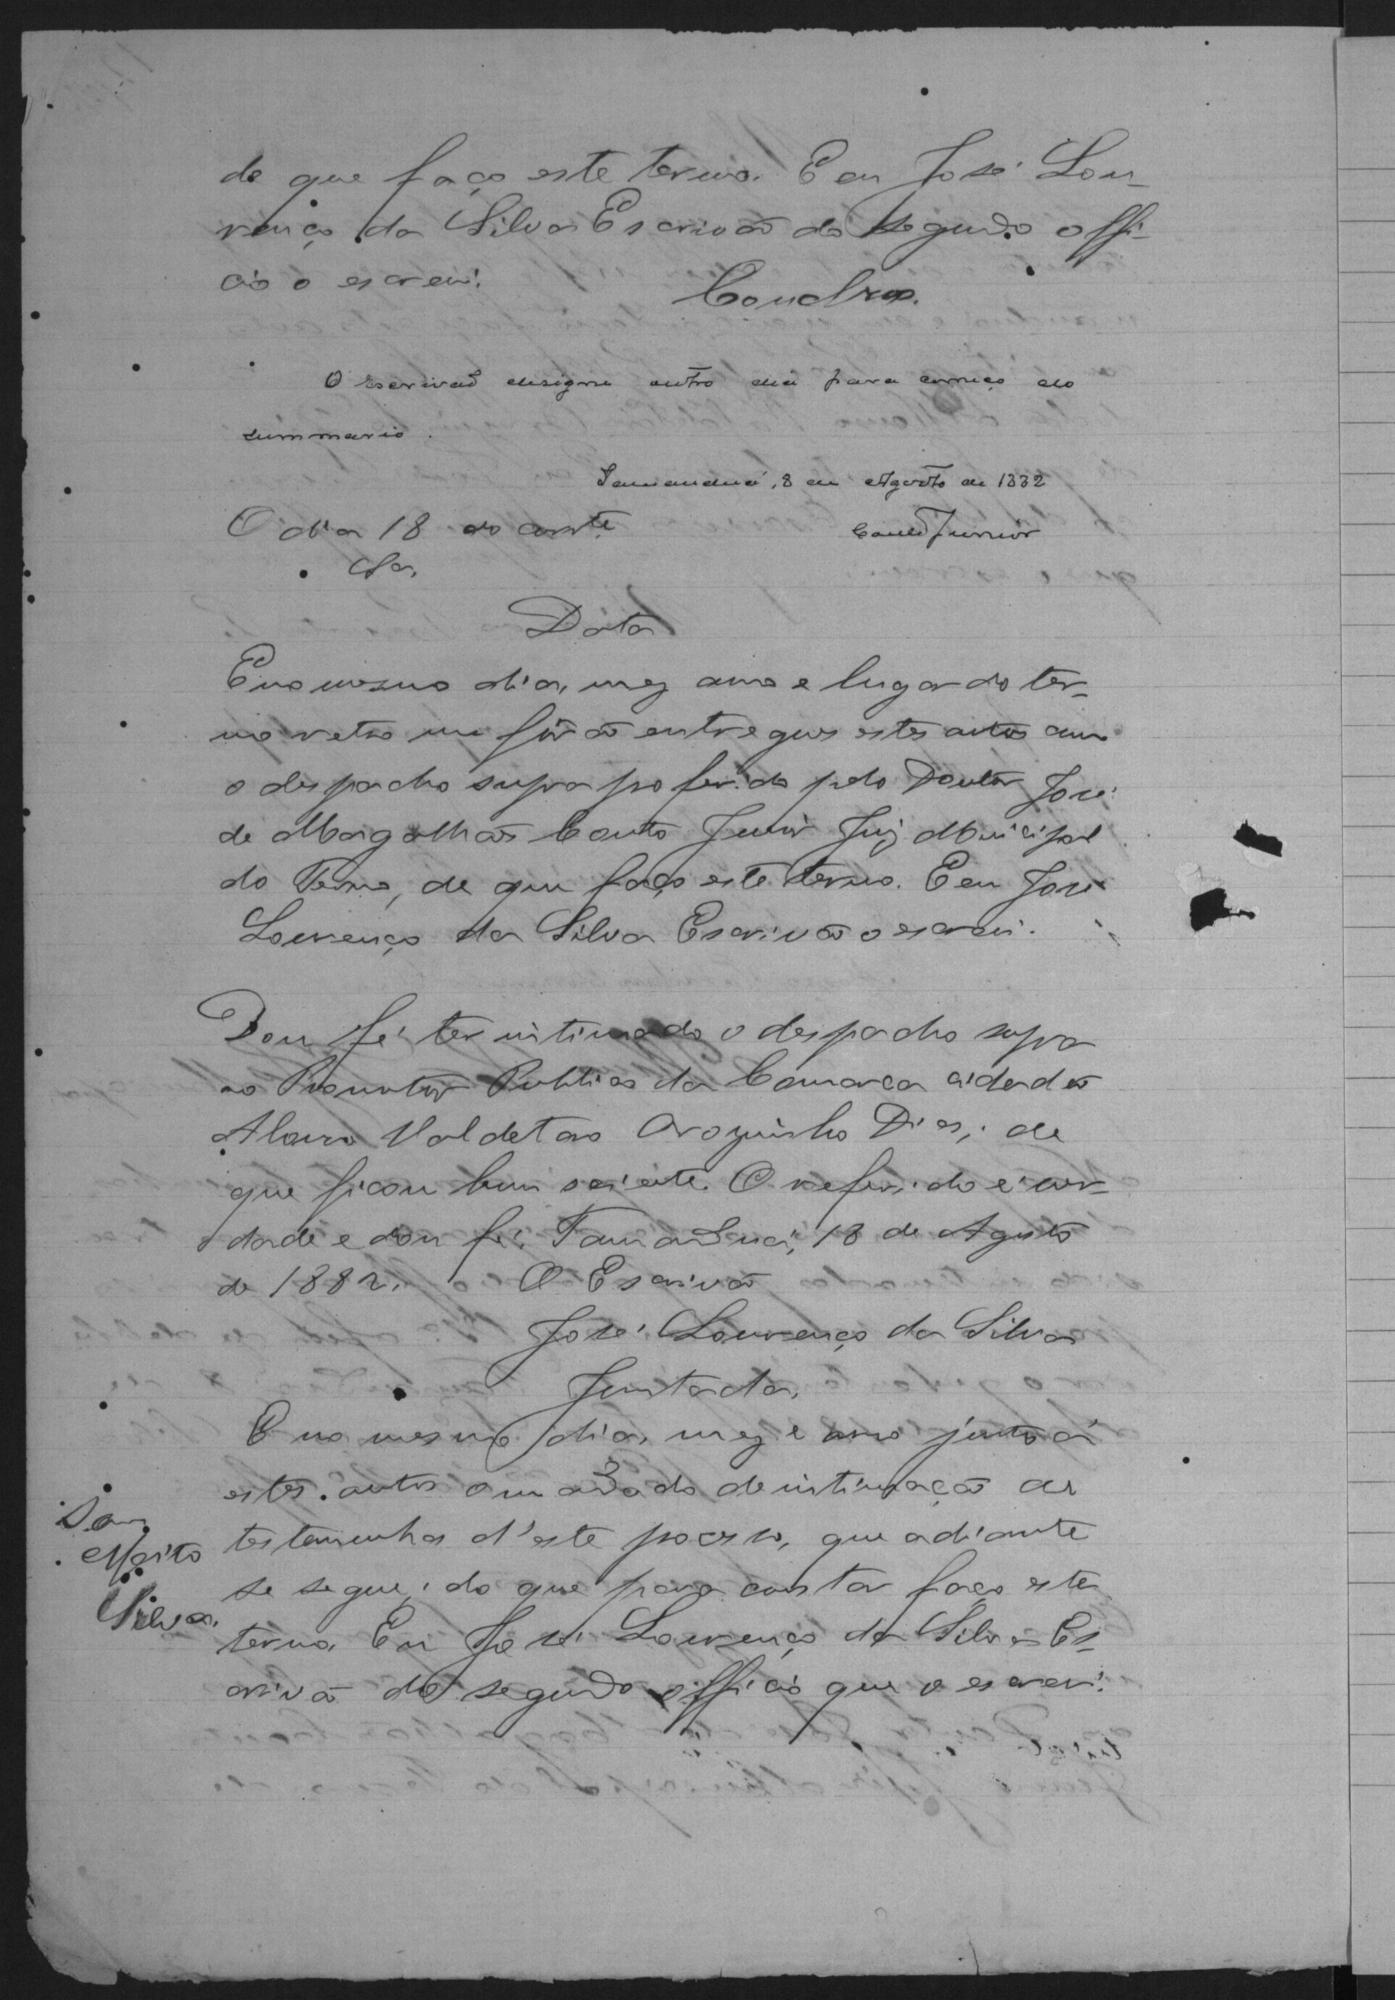 de que faço este termo. E eu José Lou-
renço da Silva Escrivão do segundo offi-
cio o escrevi.
Conclzos.
O escrivaõ designe outro dia para começo do
summario.
Tamanduá, 8 de Agosto de 1882
Couto Junior
O dia 18 do corrte.
Data
E no mesmo dia, mez anno e lugar do ter-
mo retro me forão entregues estes autos com
o despacho supra proferido pelo Doutor José
de Magalhães Couto Junior Juiz Municipal
do Termo, de que faço este termo. E eu José
Lourenço da Silva Escrivão o escrevi.
Dou fé ter intimado o despacho supra
ao Promotor Publico da Comarca cidadão
Alvaro Valdetaro Dias, de
que ficou bem sciente. O referido é ver-
dade e dou fé. Tamanduá, 18 de Agosto
de 1882. O Escrivão
José Lourenço da Silva
Juntada.
E no mesmo dia, mez e anno junto á
estes autos o mandado de intimação as
testemunhas d'este processo, que adiante
se segue; do que para constar faço este
termo. Eu José Lourenço da Silva Es-
crivão do segundo officio que o escrevi.
Silva.